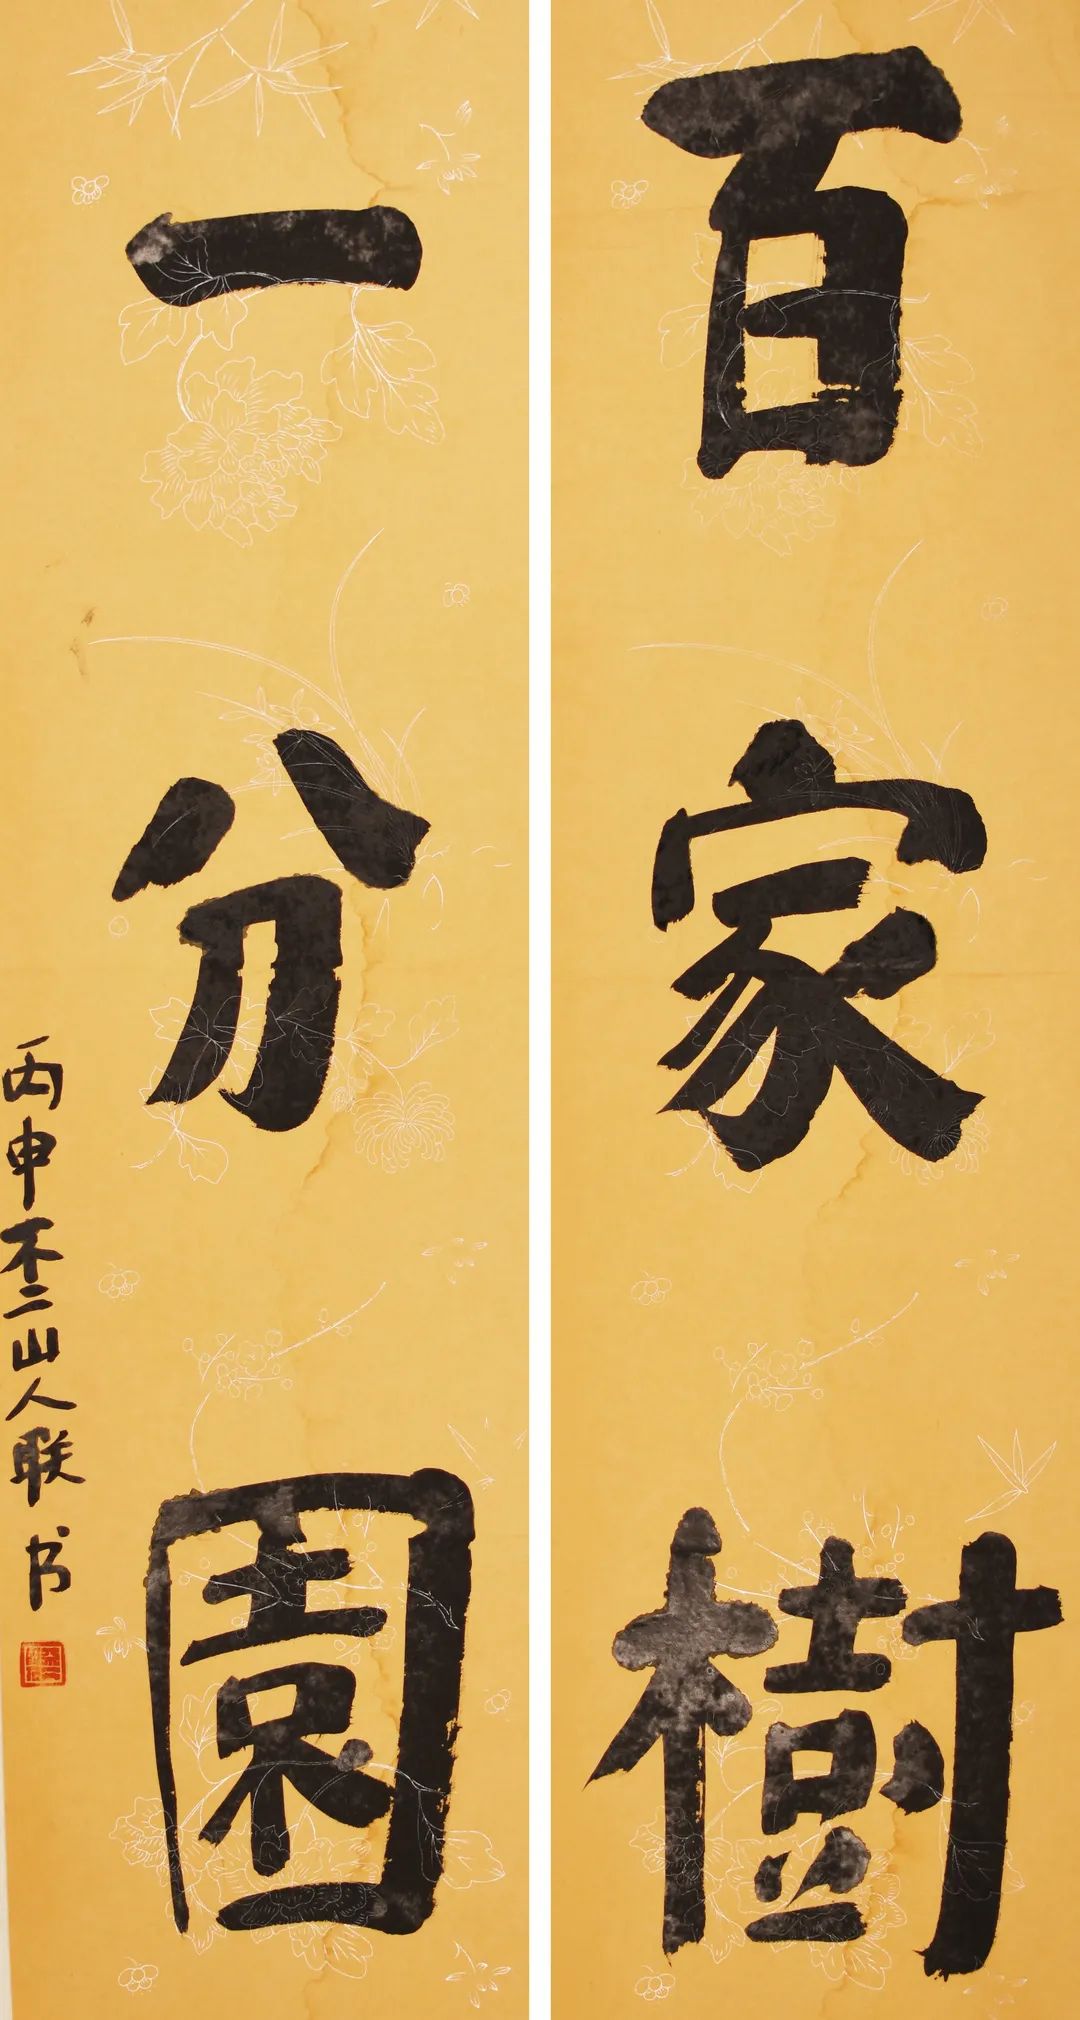 百家樹
一分園
丙申不二山人联书